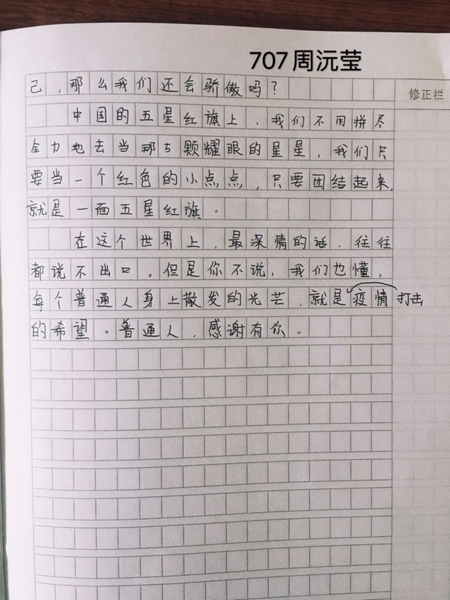 707周沅莹
修正栏
己，那么我们还会骄傲吗？
中国的五星红旗上，我们不用拼尽
全力地去当那五颗耀眼的星星，我们只
要当一个红色的小点点，只要团结起来，
就是一面五星红旗。
在这个世界上，最深情的话，往往
都说不出口。但是你不说，我们也懂，
每个普通人身上散发的光芒，就是疫情打击
的希望。普通人，感谢有你。